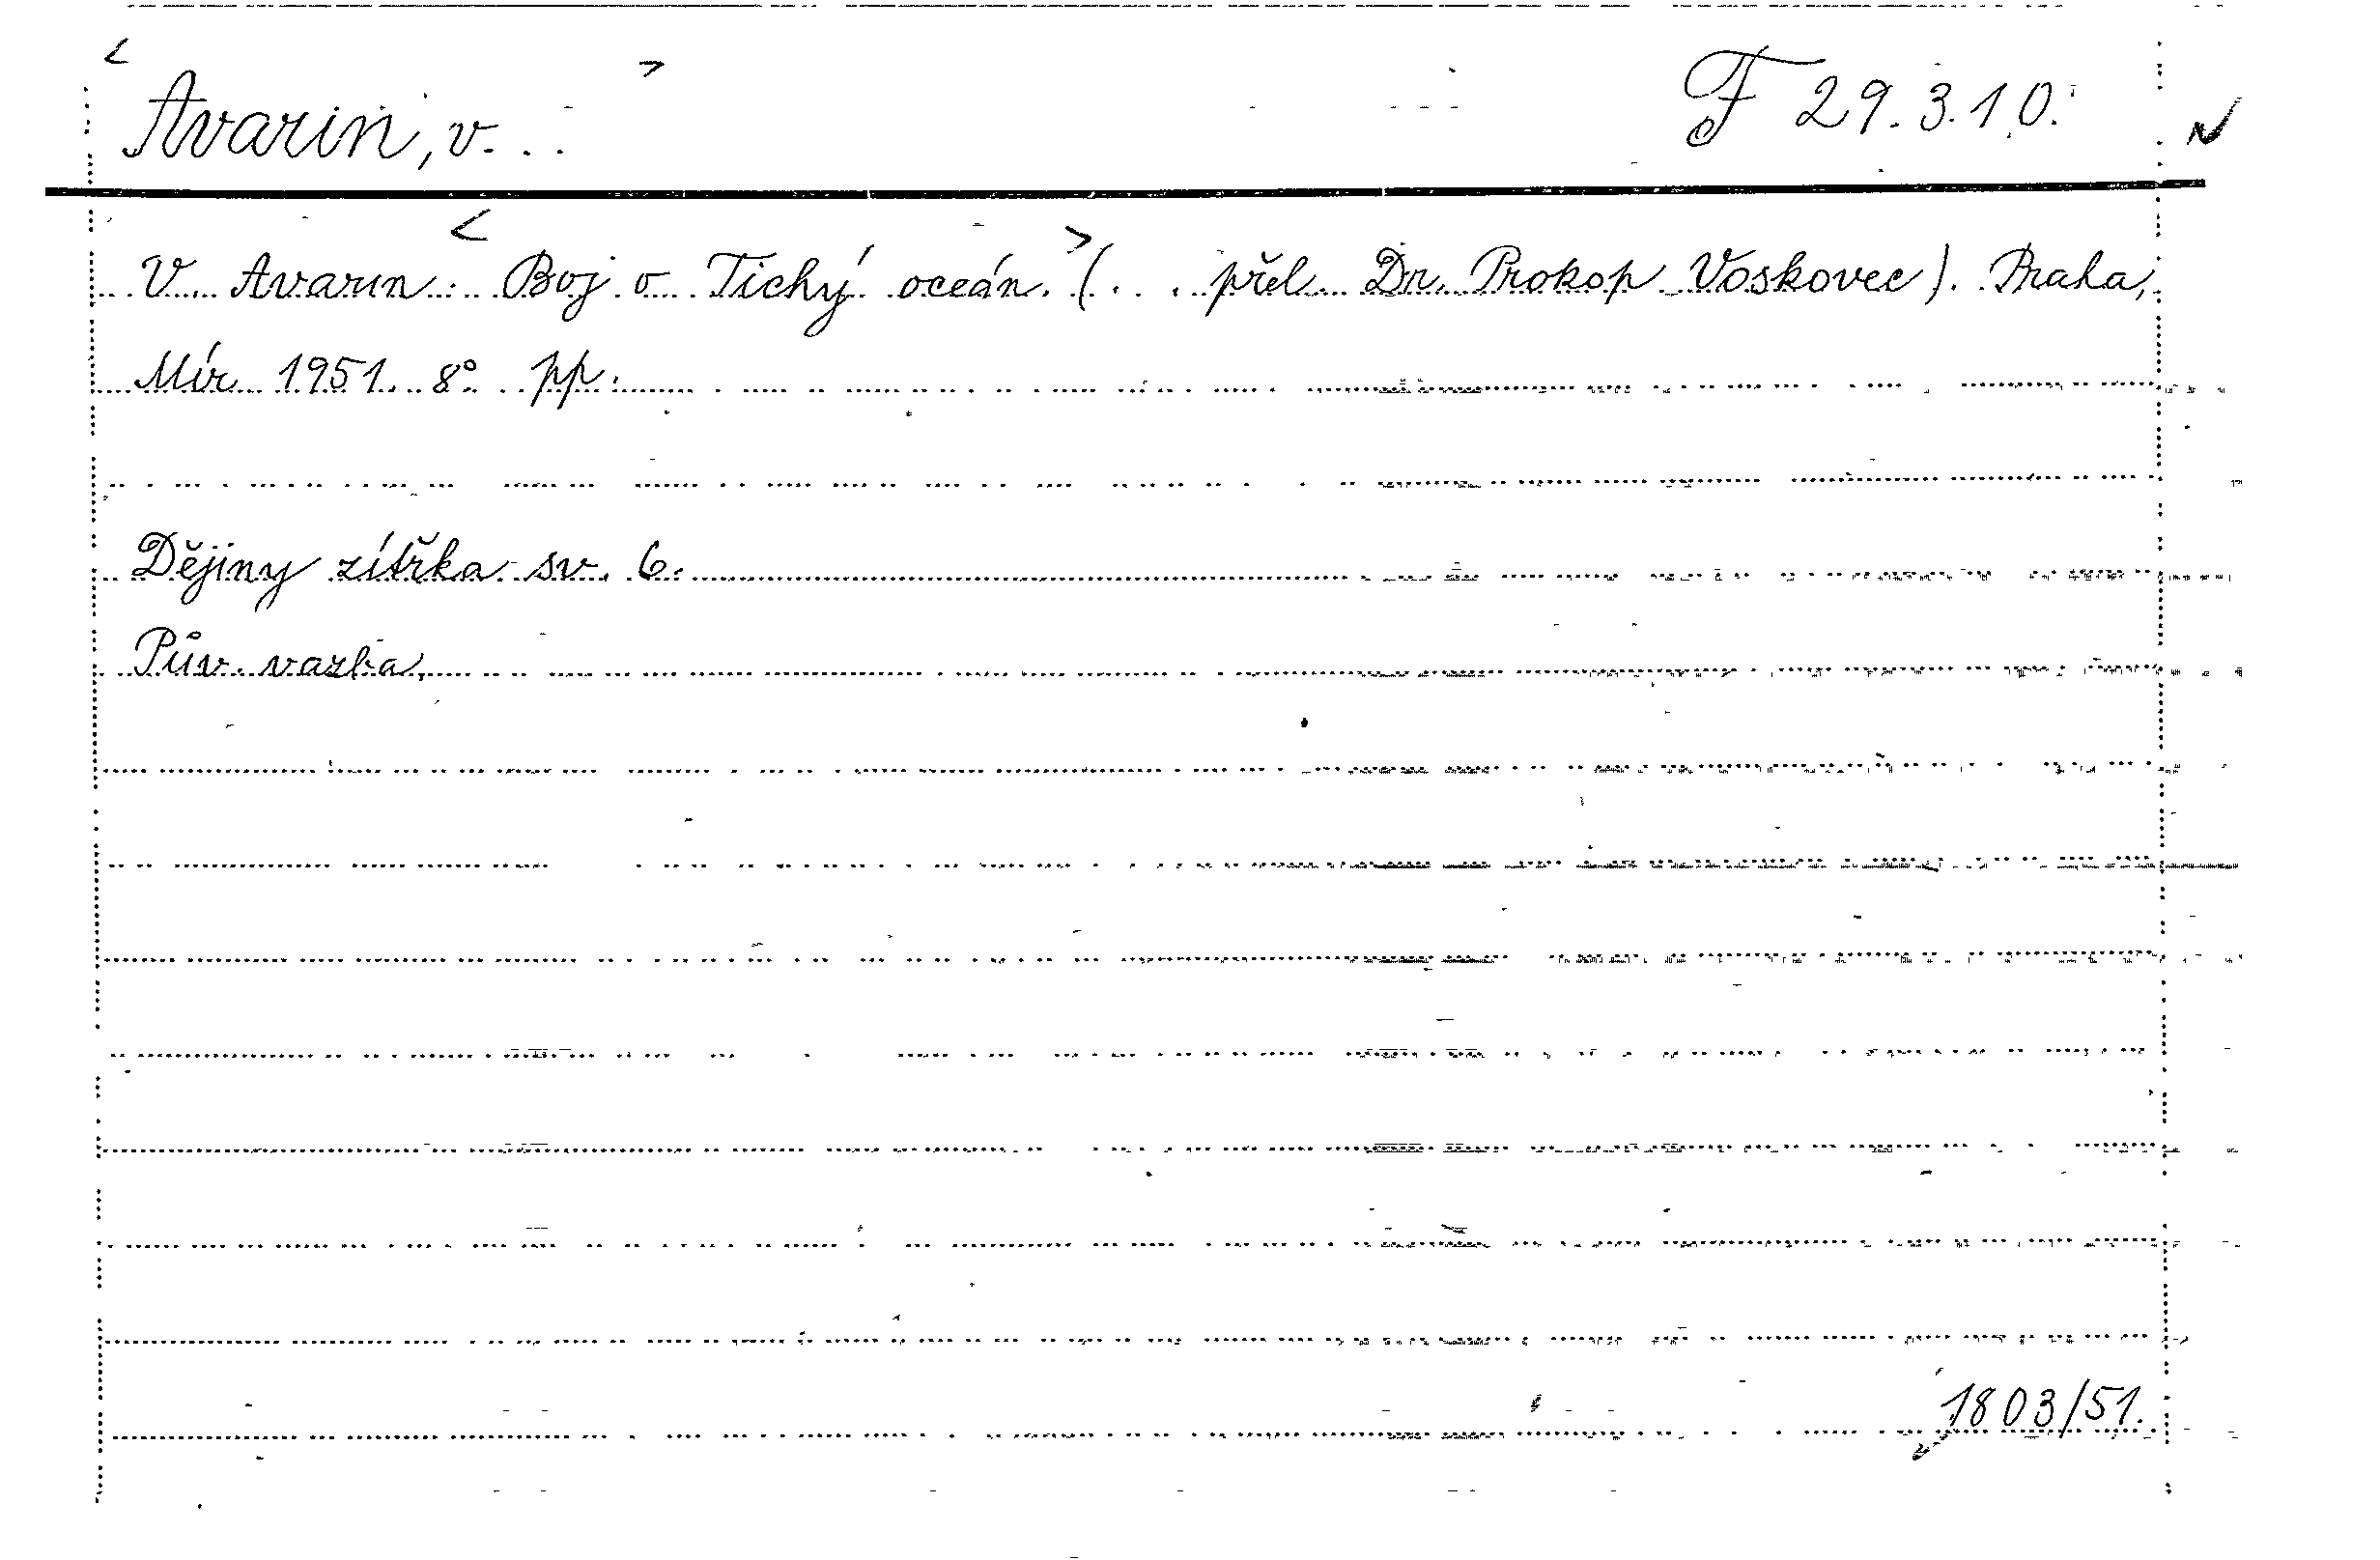 Avarin, V. . . F 29.3.10.
V. Avarin: Boj o Tichý oceán. (. . . přel. Dr. Prokop Voskovec). Praha,
Mír 1951. 8° pp.
Dějiny zítřka sv. 6.
Pův. vazba.
1803/51.